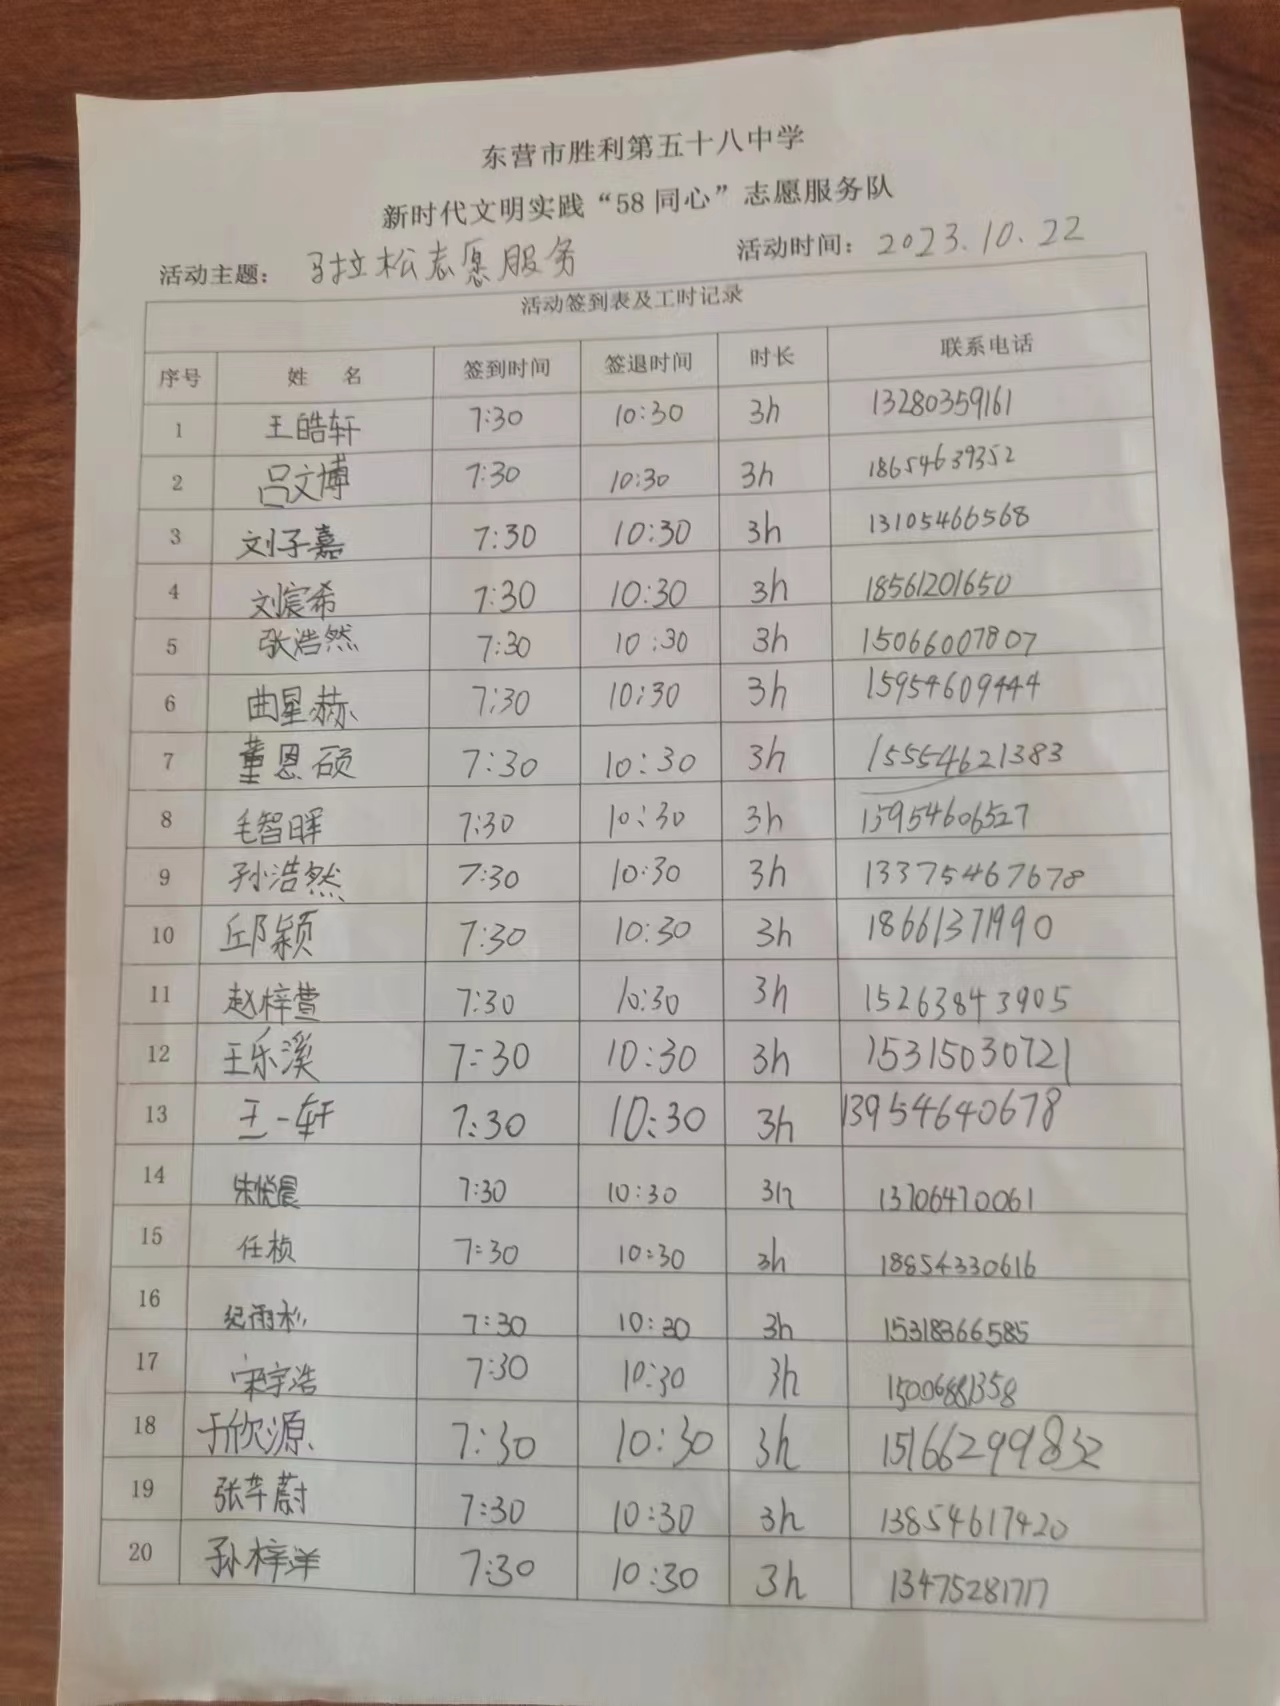 东营市胜利第五十八中学
新时代文明实践“58 同心”志愿服务队
活动主题： 马拉松志愿服务 活动时间： 2023.10.22
活动签到表及工时记录
序号 姓 名 签到时间 签退时间 时长 联系电话
1 王皓轩 7:30 10:30 3h 13280359161
2 吕文博 7:30 10:30 3h 18654639352
3 刘子嘉 7:30 10:30 3h 13105466568
4 刘宸希 7:30 10:30 3h 18561201650
5 张浩然 7:30 10:30 3h 15066007807
6 曲星赫 7:30 10:30 3h 15954609444
7 董恩硕 7:30 10:30 3h 15554621383
8 毛智晖 7:30 10:30 3h 15954606527
9 孙浩然 7:30 10:30 3h 13375467678
10 邱颖 7:30 10:30 3h 18661371990
11 赵梓萱 7:30 10:30 3h 15263843905
12 王乐溪 7:30 10:30 3h 15315030721
13 王一轩 7:30 10:30 3h 13954640678
14 朱悦晨 7:30 10:30 3h 13706470061
15 任桢 7:30 10:30 3h 18854330616
16 纪雨杉 7:30 10:30 3h 15318366585
17 宋宇浩 7:30 10:30 3h 15006881358
18 于欣源 7:30 10:30 3h 15166299832
19 7:30 10:30 3h 13854617420
20 孙梓洋 7:30 10:30 3h 13475281717